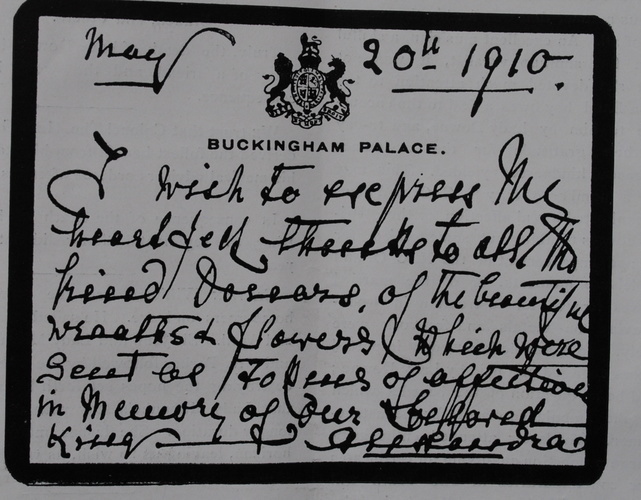 May 20th 1910.
BUCKINGHAM PALACE.
I wish to express My
heartfelt thanks to all the
kind Donors, of the beautiful
wreaths & flowers which were
sent as tokens of affection
in Memory of Our beloved
King Alexandra